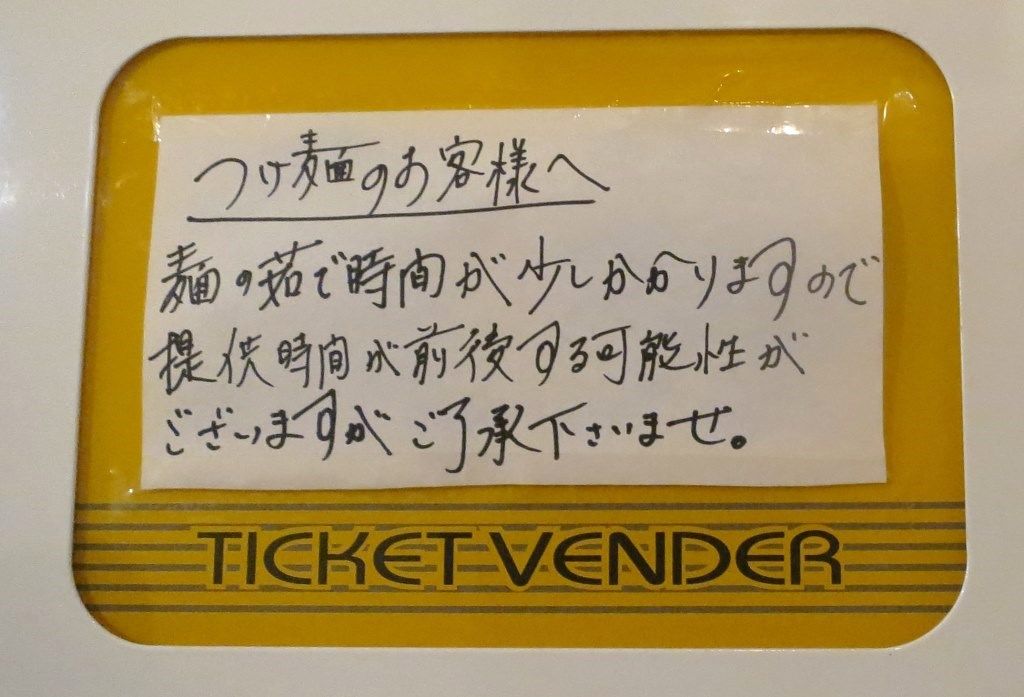 つけ麺のお客様へ
麺の茹で時間が少しかかりますので
提供時間が前後する可能性が
ございますがご了承下さいませ。
TICKET VENDER